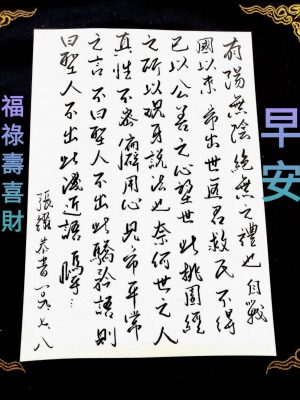 早安
有陽無陰絕無之禮也自戰
國以來帝出世匡君救民不得
已以公善之心望世此桃園經
之所以現身說法也奈何世之人
真性不察癖用心見帝平常
之言不曰聖人不出此驕矜語則
曰聖人不出此淺近語嗚乎…
張恭書一〇九.七.八
福祿壽喜財